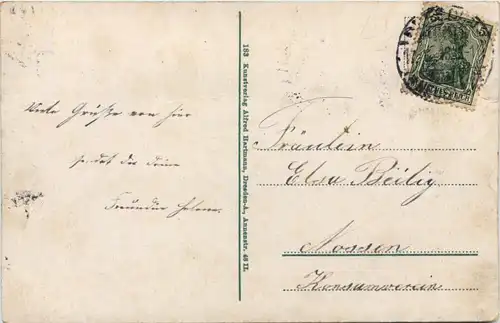 Viele Grüße von hier
sendet dir deine
Freundin Helene.
183 Kunstverlag Alfred Hartmann, Dresden-A., Annenstr. 48 II.
Fräulein
Elsa Beilig
Nossen
Konsumverein